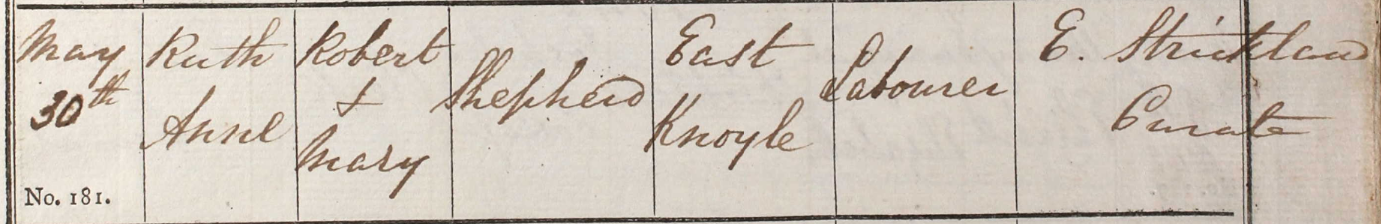 May
30th
No. 181.
Ruth
Anne
Robert
+
Mary
Shepherd
East
Knoyle
Labourer
E. Strickland
Curate